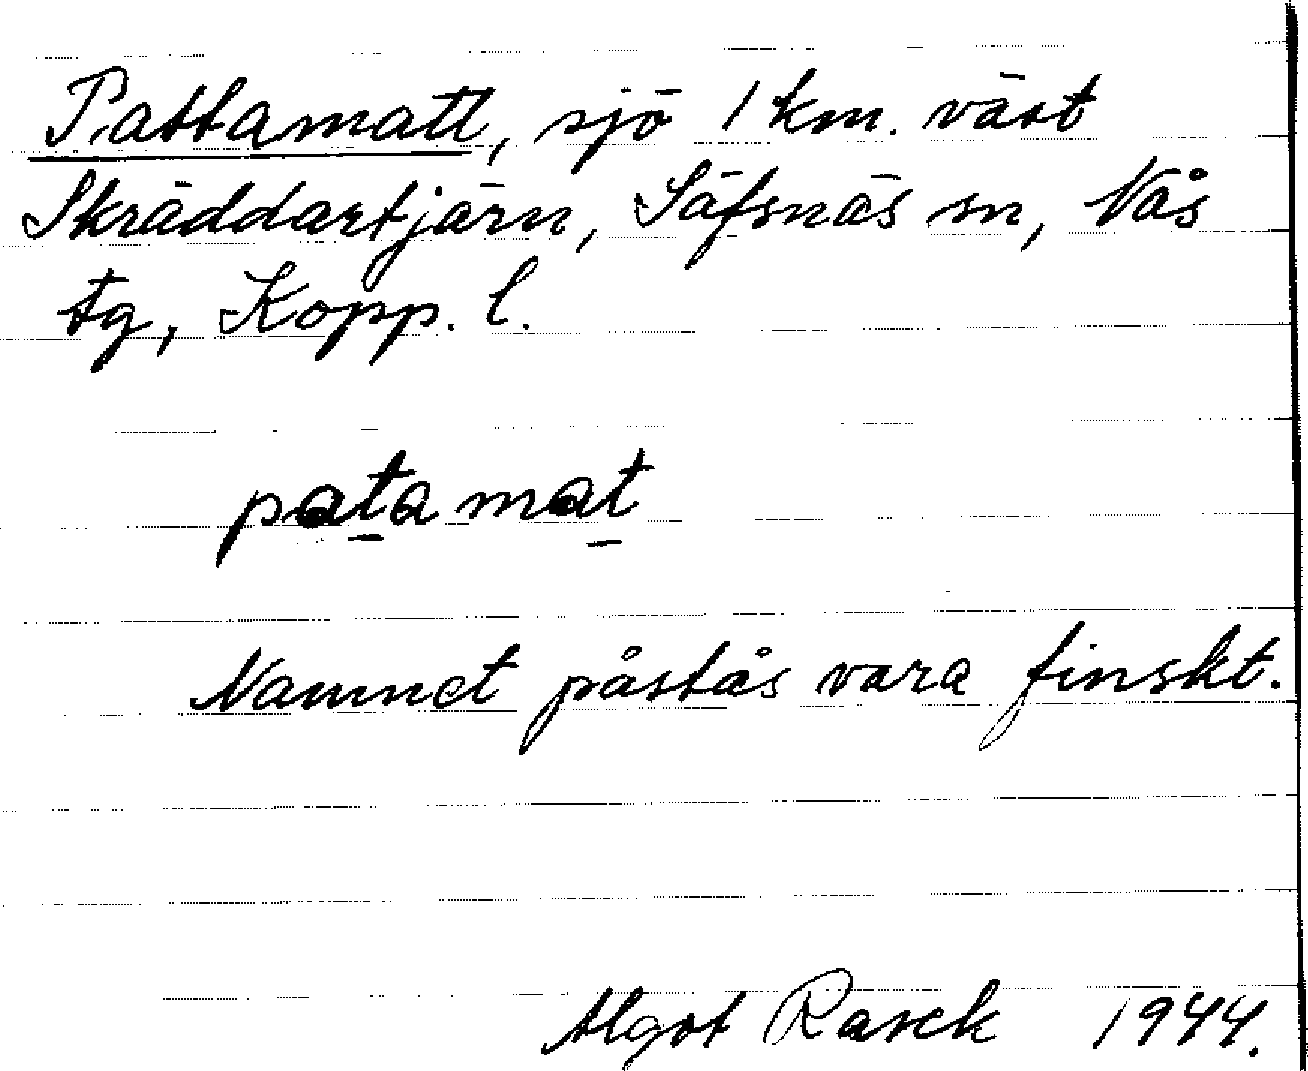 Pattamatt, sjö 1 km. väst
Skräddartjärn, Säfsnäs sn, Nås
tg, Kopp. l.
patamat
Namnet påstås vara finskt.
Algot Rasck 1944.